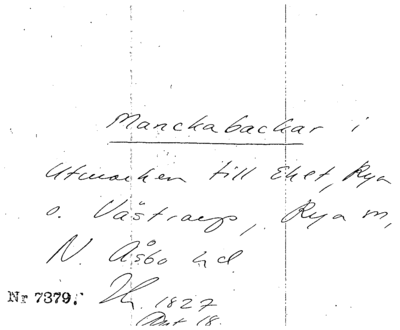 Manckabackar i
Utmarken till Eket, Rya
o. Västraryp, Rya m,
N. Åsbo hd
Nr 7379. 1827
18.